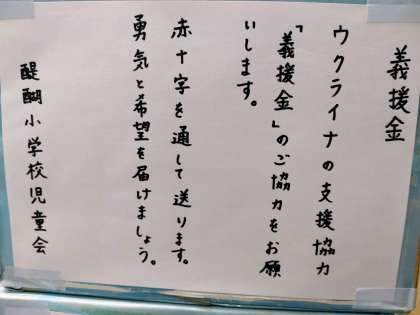 義援金
ウクライナの支援協力
「義援金」のご協力をお願
いします。
赤十字を通して送ります。
勇気と希望を届けましょう。
醍醐小学校児童会